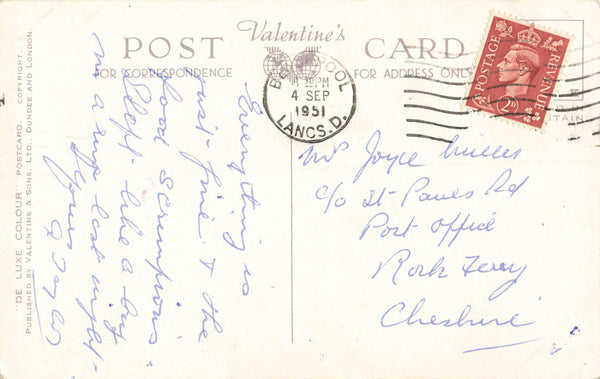 Valentine's
POST CARD
FOR CORRESPONDENCE
FOR ADDRESS ONLY
"DE LUXE COLOUR" POSTCARD. COPYRIGHT.
PUBLISHED BY VALENTINE & SONS, LTD., DUNDEE AND LONDON.
PM
4 SEP
1951
LANCS.D.
POSTAGE
REVENUE
2D
Everything is
just fine & the
food scrumptious
Slept like a bug
in a rug last night.
Yours
Joyce
c/o St Pauls Rd
Post Office
Rock Ferry
Cheshire